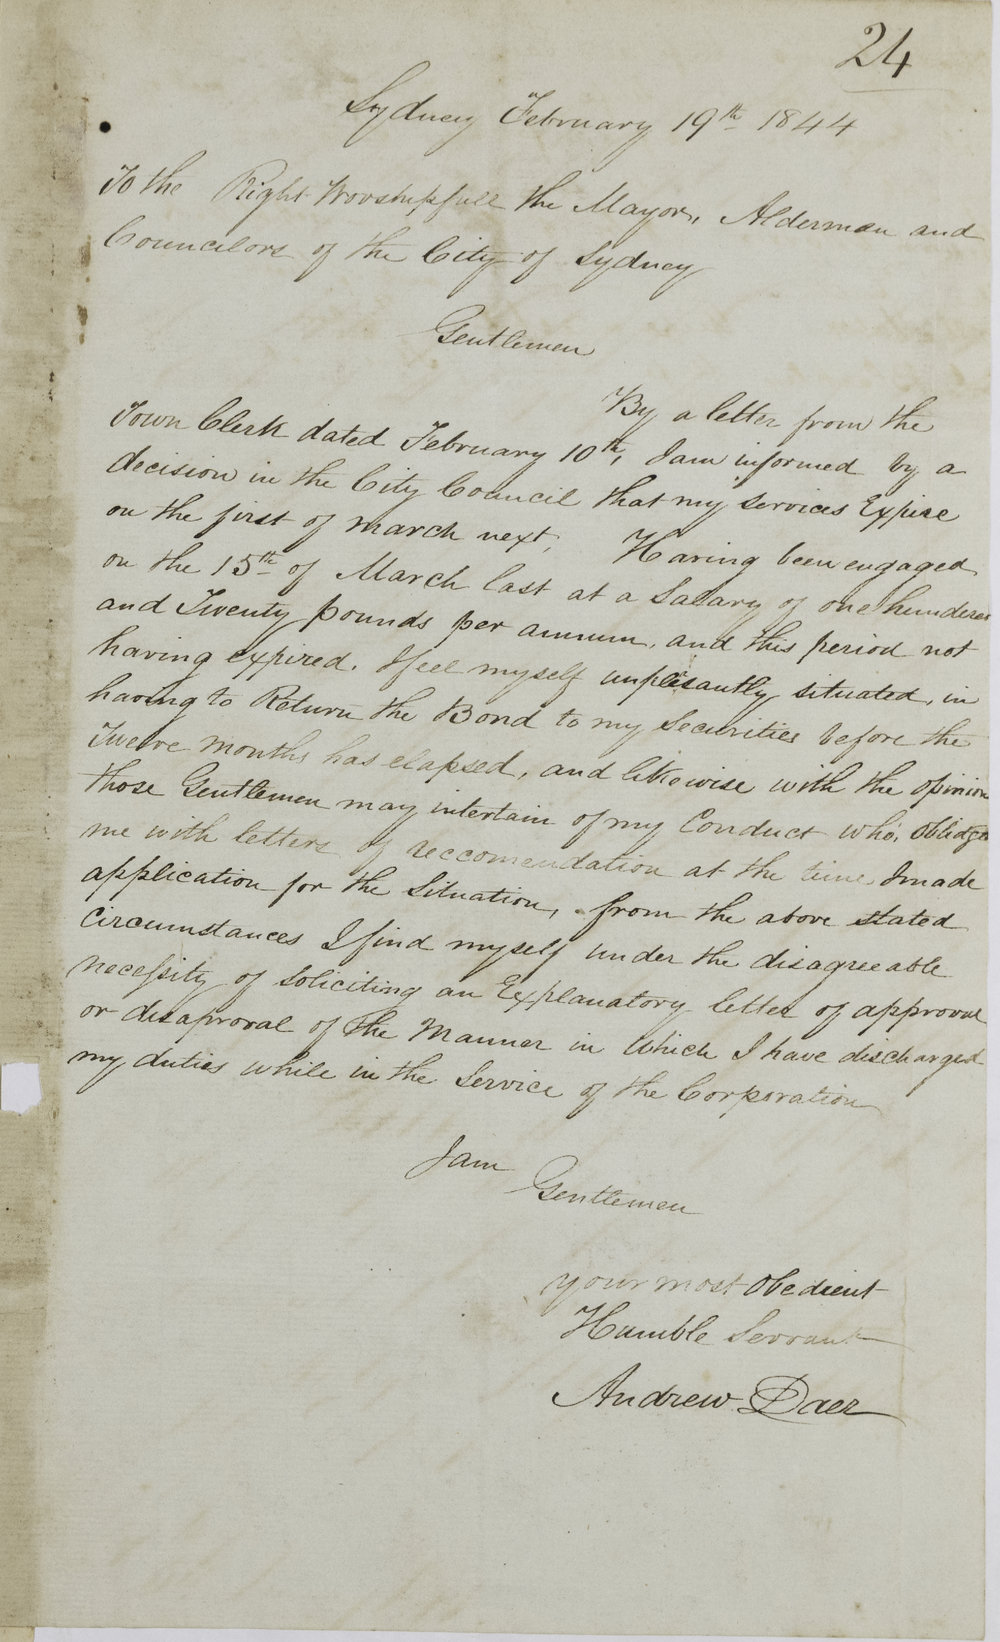 24
Sydney February 19th 1844
To the Right Worshipfull the Mayor, Aldermen and
Councelors of the City of Sydney
Gentlemen
By a letter from the
Town Clerk dated February 10th, I am informed by a
decision in the City Council that my services Expire
on the first of march next, Having been engaged
on the 15th of March last at a Salary of one hundered
and Twenty pounds per annum, and this period not
having expired. I feel myself unplesantly situated, in
having to Return the Bond to my Securities before the
Twelve months has elapsed, and likewise with the opinion
those Gentlemen may intertain of my Conduct who, oblidged
me with letters of reccomendation at the time I made
application for the Situation, from the above stated
Circumstances I find myself under the disagreeable
necessity of soliciting an Explanatory letter of approval
or disaproval of the Manner in Which I have discharged
my duties while in the Service of the Corporation
I am
Gentlemen
your most Obedient
Humble Servant
Andrew Daer